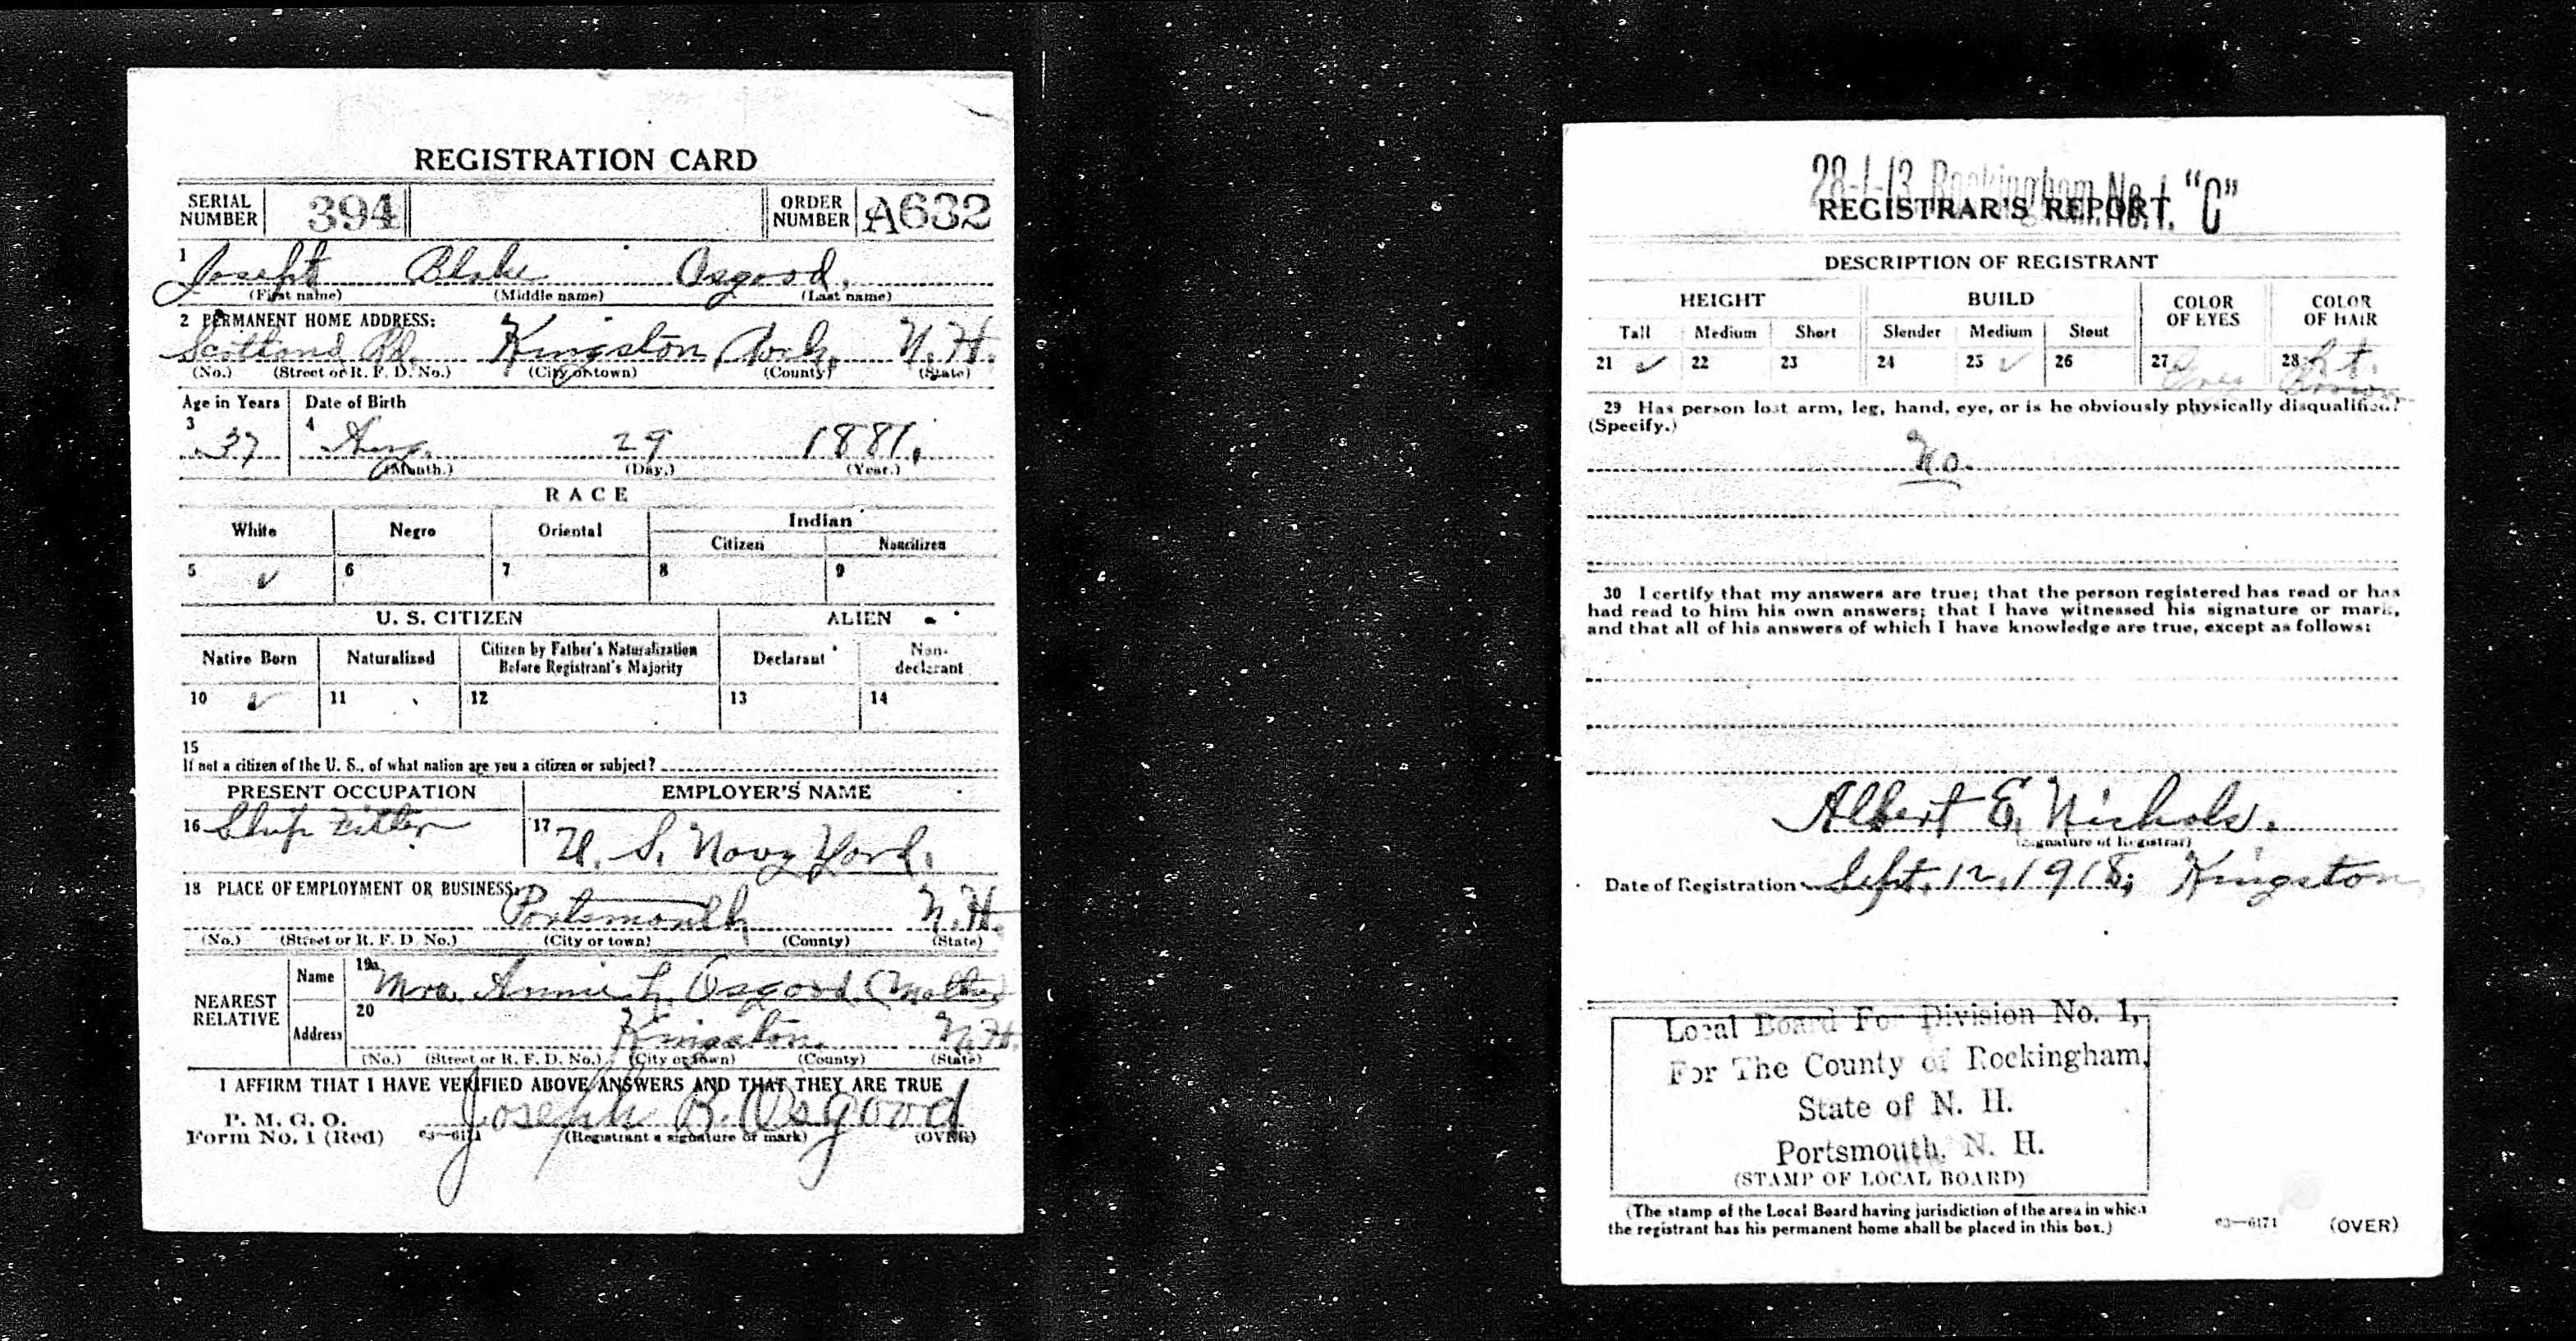 REGISTRATION CARD
SERIAL NUMBER 394 ORDER NUMBER A632
1 Joseph Blake Osgood.
(First name) (Middle name) (Last name)
2 PERMANENT HOME ADDRESS:
Scotland Rd. Kingston, Rock. N.H.
(No.) (Street or R. F. D. No.) (City or town) (County) (State)
Age in Years Date of Birth
3 37 4 Aug. 29 1881.
(Month.) (Day.) (Year.)
RACE
White Negro Oriental Indian
Citizen Noncitizen
5 ✓ 6 7 8 9
U. S. CITIZEN ALIEN
Native Born Naturalized Citizen by Father's Naturalization Before Registrant's Majority Declarant Non-declarant
10 ✓ 11 12 13 14
15
If not a citizen of the U. S., of what nation are you a citizen or subject?
PRESENT OCCUPATION EMPLOYER'S NAME
16 Ship Fitter 17 U. S. Navy Yard.
18 PLACE OF EMPLOYMENT OR BUSINESS:
Portsmouth N.H.
(No.) (Street or R. F. D. No.) (City or town) (County) (State)
NEAREST RELATIVE Name 19a Mrs. Annie L. Osgood (Mother)
Address 20 Kingston N.H.
(No.) (Street or R. F. D. No.) (City or town) (County) (State)
I AFFIRM THAT I HAVE VERIFIED ABOVE ANSWERS AND THAT THEY ARE TRUE
P. M. G. O.
Form No. 1 (Red) 03—6171 Joseph B. Osgood
(Registrant's signature or mark) (OVER)
28-1-13 Rockingham No. 1. "C"
REGISTRAR'S REPORT
DESCRIPTION OF REGISTRANT
HEIGHT BUILD COLOR OF EYES COLOR OF HAIR
Tall Medium Short Slender Medium Stout
21 ✓ 22 23 24 25 ✓ 26 27 28
29 Has person lost arm, leg, hand, eye, or is he obviously physically disqualified?
(Specify.)
No.
30 I certify that my answers are true; that the person registered has read or has
had read to him his own answers; that I have witnessed his signature or mark,
and that all of his answers of which I have knowledge are true, except as follows:
Albert E. Nichols.
(Signature of Registrar)
Date of Registration Sept. 12, 1918; Kingston
Local Board For Division No. 1,
For The County of Rockingham,
State of N. H.
Portsmouth, N. H.
(STAMP OF LOCAL BOARD)
(The stamp of the Local Board having jurisdiction of the area in which
the registrant has his permanent home shall be placed in this box.)
03—6171 (OVER)